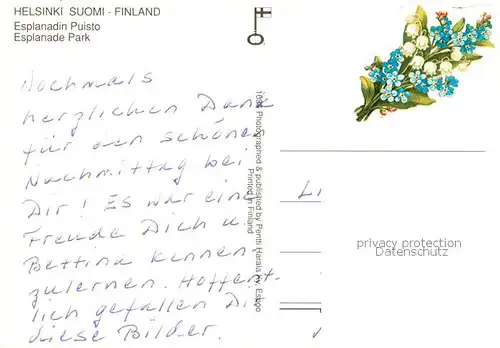 HELSINKI SUOMI - FINLAND
Esplanadin Puisto
Esplanade Park
Nochmals
herzlichen Dank
für den schönen
Nachmittag bei
Dir! Es war eine
Freude Dich u.
Bettina kennen-
zulernen. Hoffent-
lich gefallen Dir
diese Bilder.
Photographed & published by Pentti Harala Ky, Espoo
Printed in Finland
privacy protection
Datenschutz